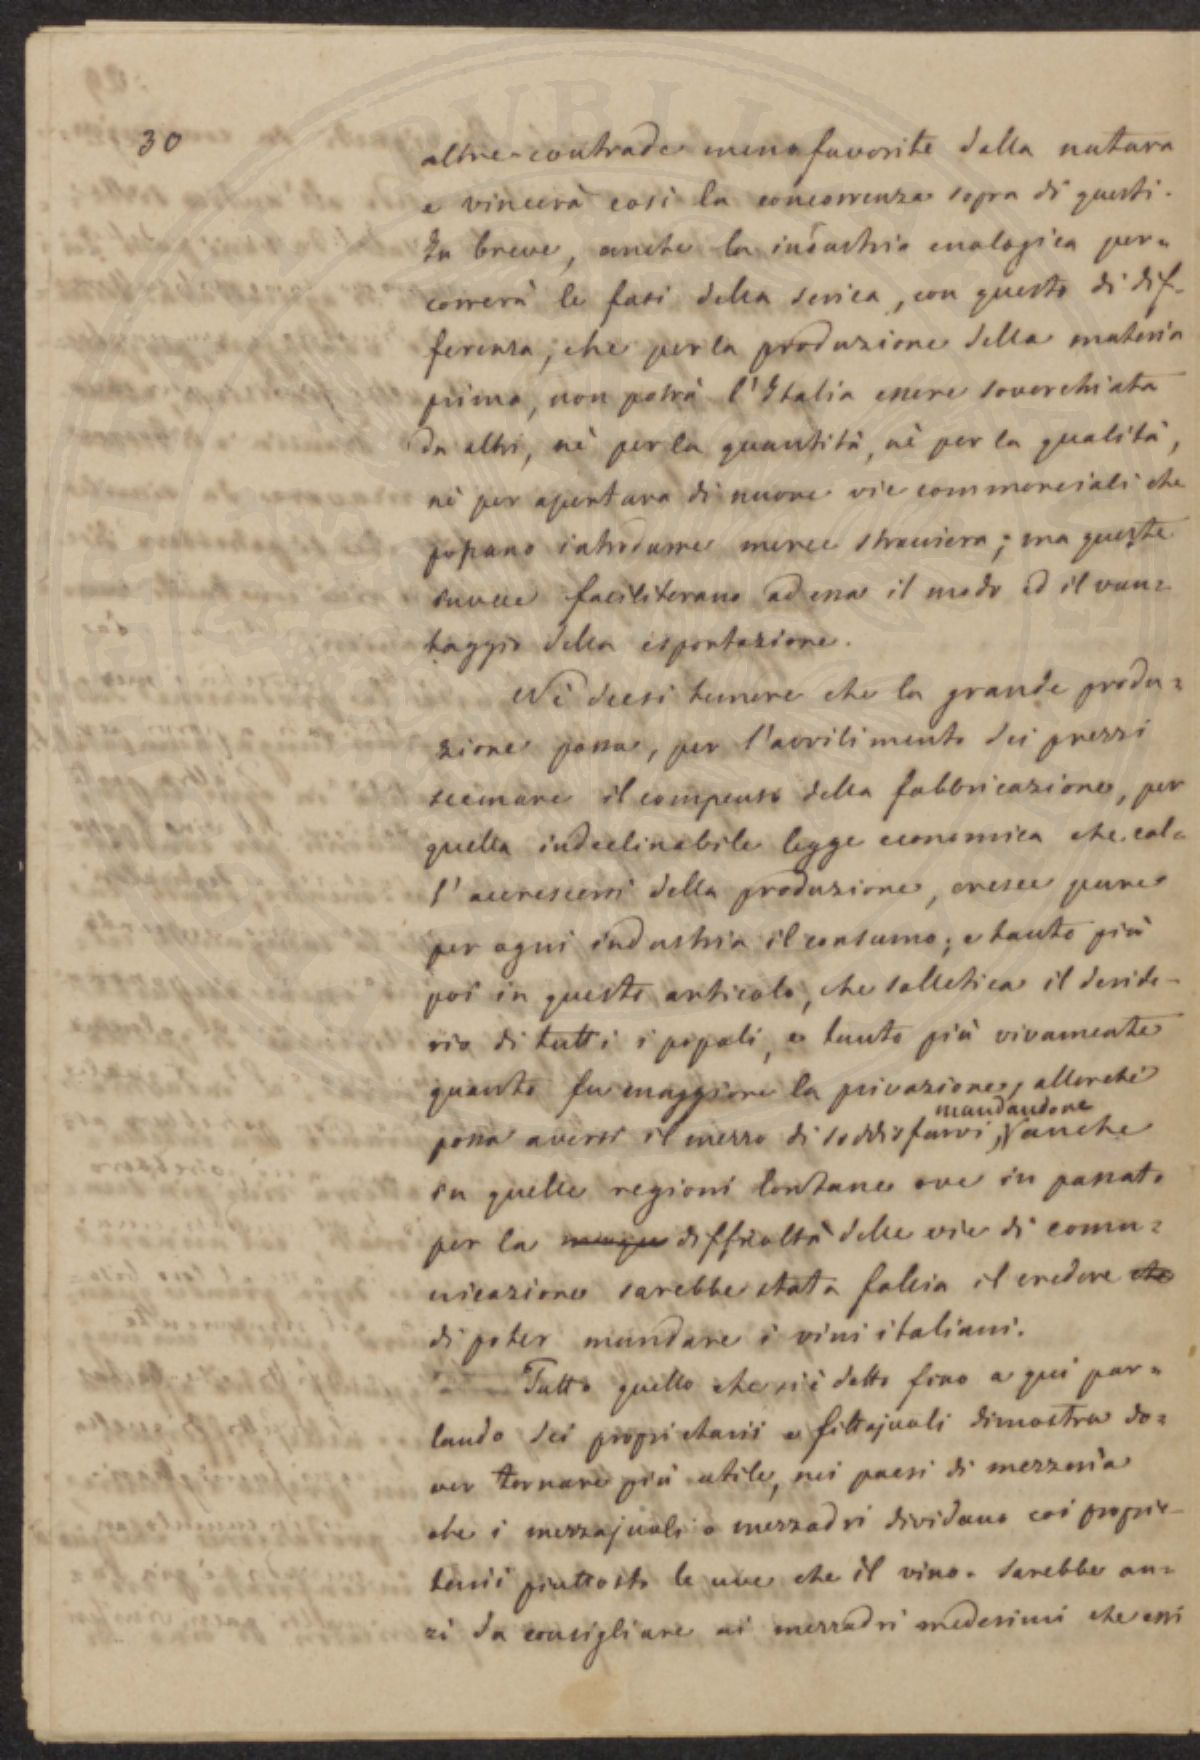 30
altre contrade meno favorite dalla natura
e vincerà così la concorrenza sopra di questi.
In breve, anche la industria enologica per=
correrà le fasi della serica, con questo di dif-
ferenza, che per la produzione della materia
prima, non potrà l'Italia essere soverchiata
da altri, nè per la quantità, nè per la qualità,
nè per apertura di nuove vie commerciali che
possano introdurre merce straniera; ma queste
invece faciliterano ad essa il modo ed il van=
taggio della esportazione.
Nè deesi temere che la grande produ=
zione possa, per l'avvilimento dei prezzi
scemare il compenso della fabbricazione, per
quella indeclinabile legge economica che col=
l'accrescersi della produzione, cresce pure
per ogni industria il consumo; e tanto più
poi in questo articolo, che solletica il deside-
rio di tutti i popoli, e tanto più vivamente
quanto fu maggiore la privazione, allorché
mandandone
possa aversi il mezzo di soddisfarvi, anche
in quelle regioni lontane ove in passato
per la difficoltà delle vie di comu=
nicazione sarebbe stata follia il credere che
di poter mandare i vini italiani.
Tutto quello che si è detto fino a qui par=
lando dei proprietarii e fittajuoli dimostra do=
ver tornare più utile, nei paesi di mezzeria
che i mezzajuoli o mezzadri dividano coi proprie-
tarii piuttosto le uve che il vino. Sarebbe an=
zi da consigliare ai mezzadri medesimi che essi